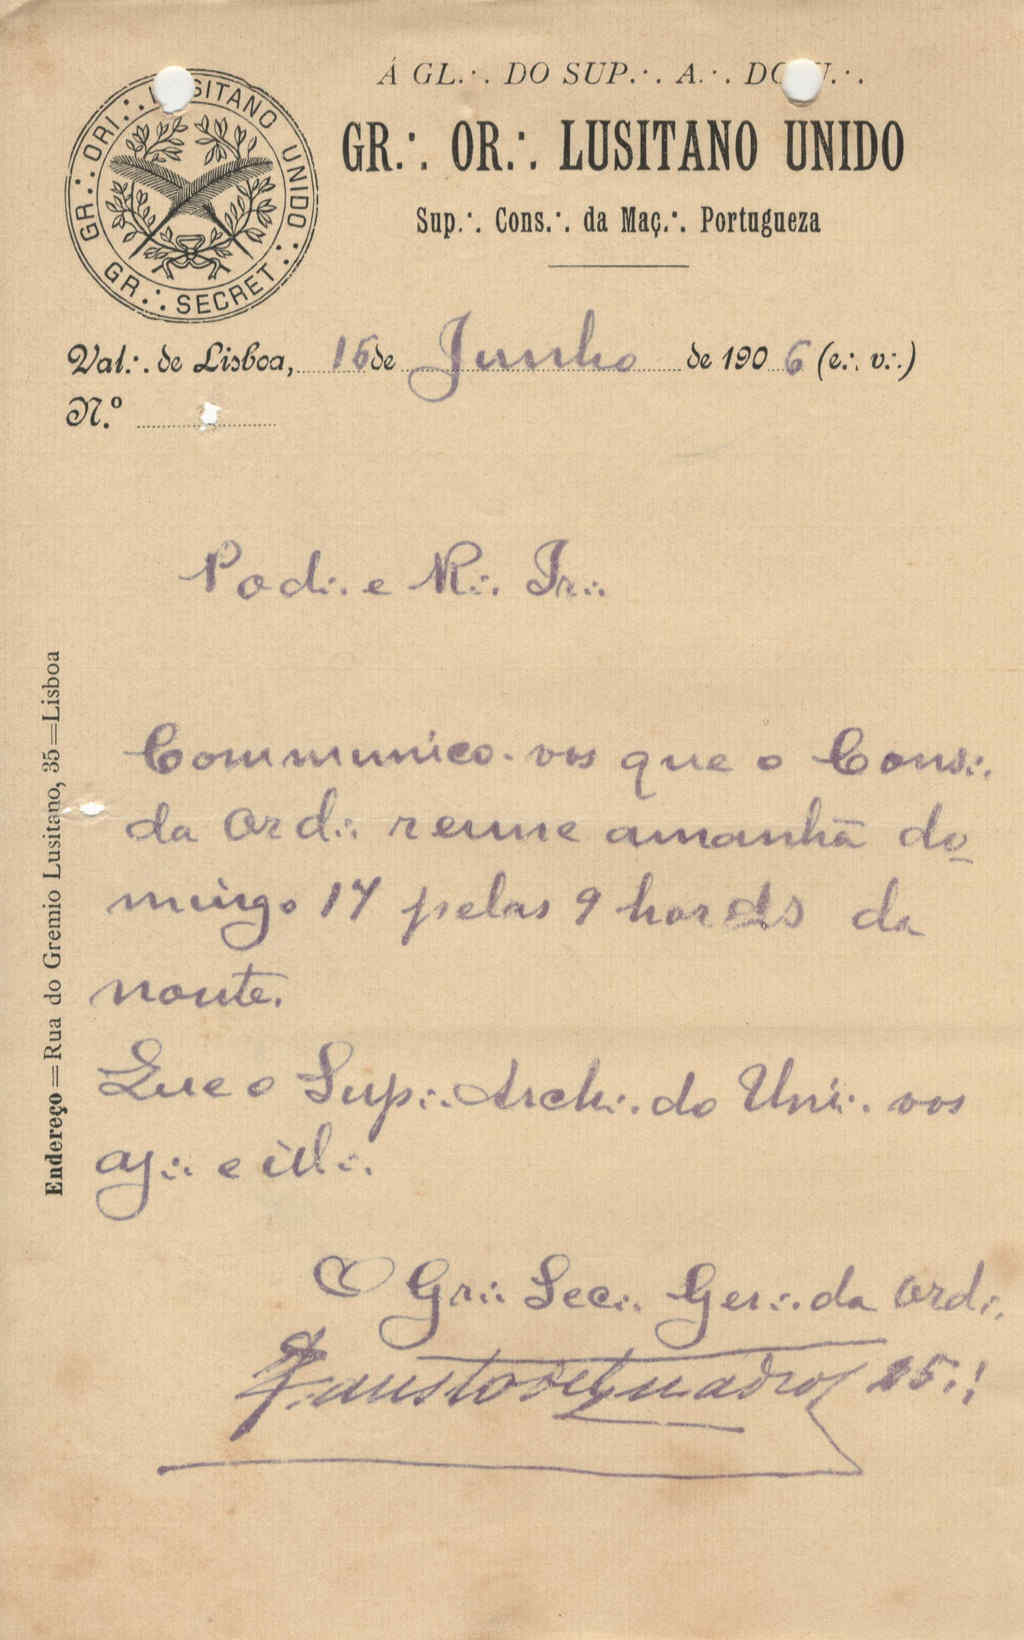 Á GL.·. DO SUP.·. A.·. DO U.·.
GR.·. ORI.·. LUSITANO UNIDO.·.
GR.·. SECRET.·.
GR.·. OR.·. LUSITANO UNIDO
Sup.·. Cons.·. da Maç.·. Portugueza
Val.·. de Lisboa, 16 de Junho de 1906 (e.·. v.·.)
N.º
Pod.·. e R.·. Ir.·.
Communico-vos que o Cons.·.
da Ord.·. reune amanhã do-
mingo 17 pelas 9 horas da
noute.
Que o Sup.·. Arch.·. do Uni.·. vos
aj.·. e ill.·.
O Gr.·. Sec.·. Ger.·. da Ord.·.
Fausto de Quadros 25.·.
Endereço=Rua do Gremio Lusitano, 35=Lisboa